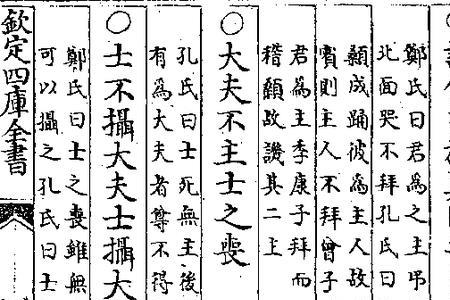 鄭氏曰君為之主弔
北面哭不拜孔氏曰
顙成踊彼為主人故
賓則主人不拜曾子
君為主季康子拜而
稽顙故譏其二主
○大夫不主士之喪
孔氏曰士死無主後
有為大夫者尊不得
○士不攝大夫士攝大
鄭氏曰士之喪雖無
可以攝之孔氏曰士
欽定四庫全書